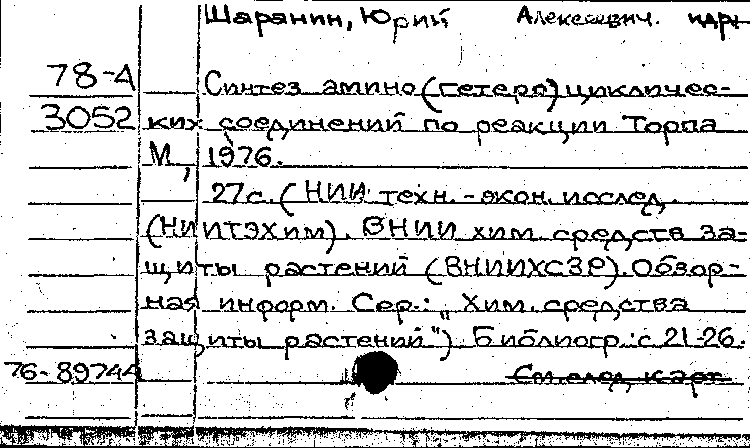 Шаранин, Юрий Алексеевич.
78-4 Синтез амино(гетеро)цикличес-
3052 ких соединений по реакции Торпа
М, 1976.
27с. (НИИ техн.-экон. исслед.
(НИИТЭХим). ВНИИ хим. средств за-
щиты растений (ВНИИХСЗР). Обзор-
ная информ. Сер.: „Хим. средства
защиты растений"). Библиогр.: с 21-26.
76-89744 См. след. карт